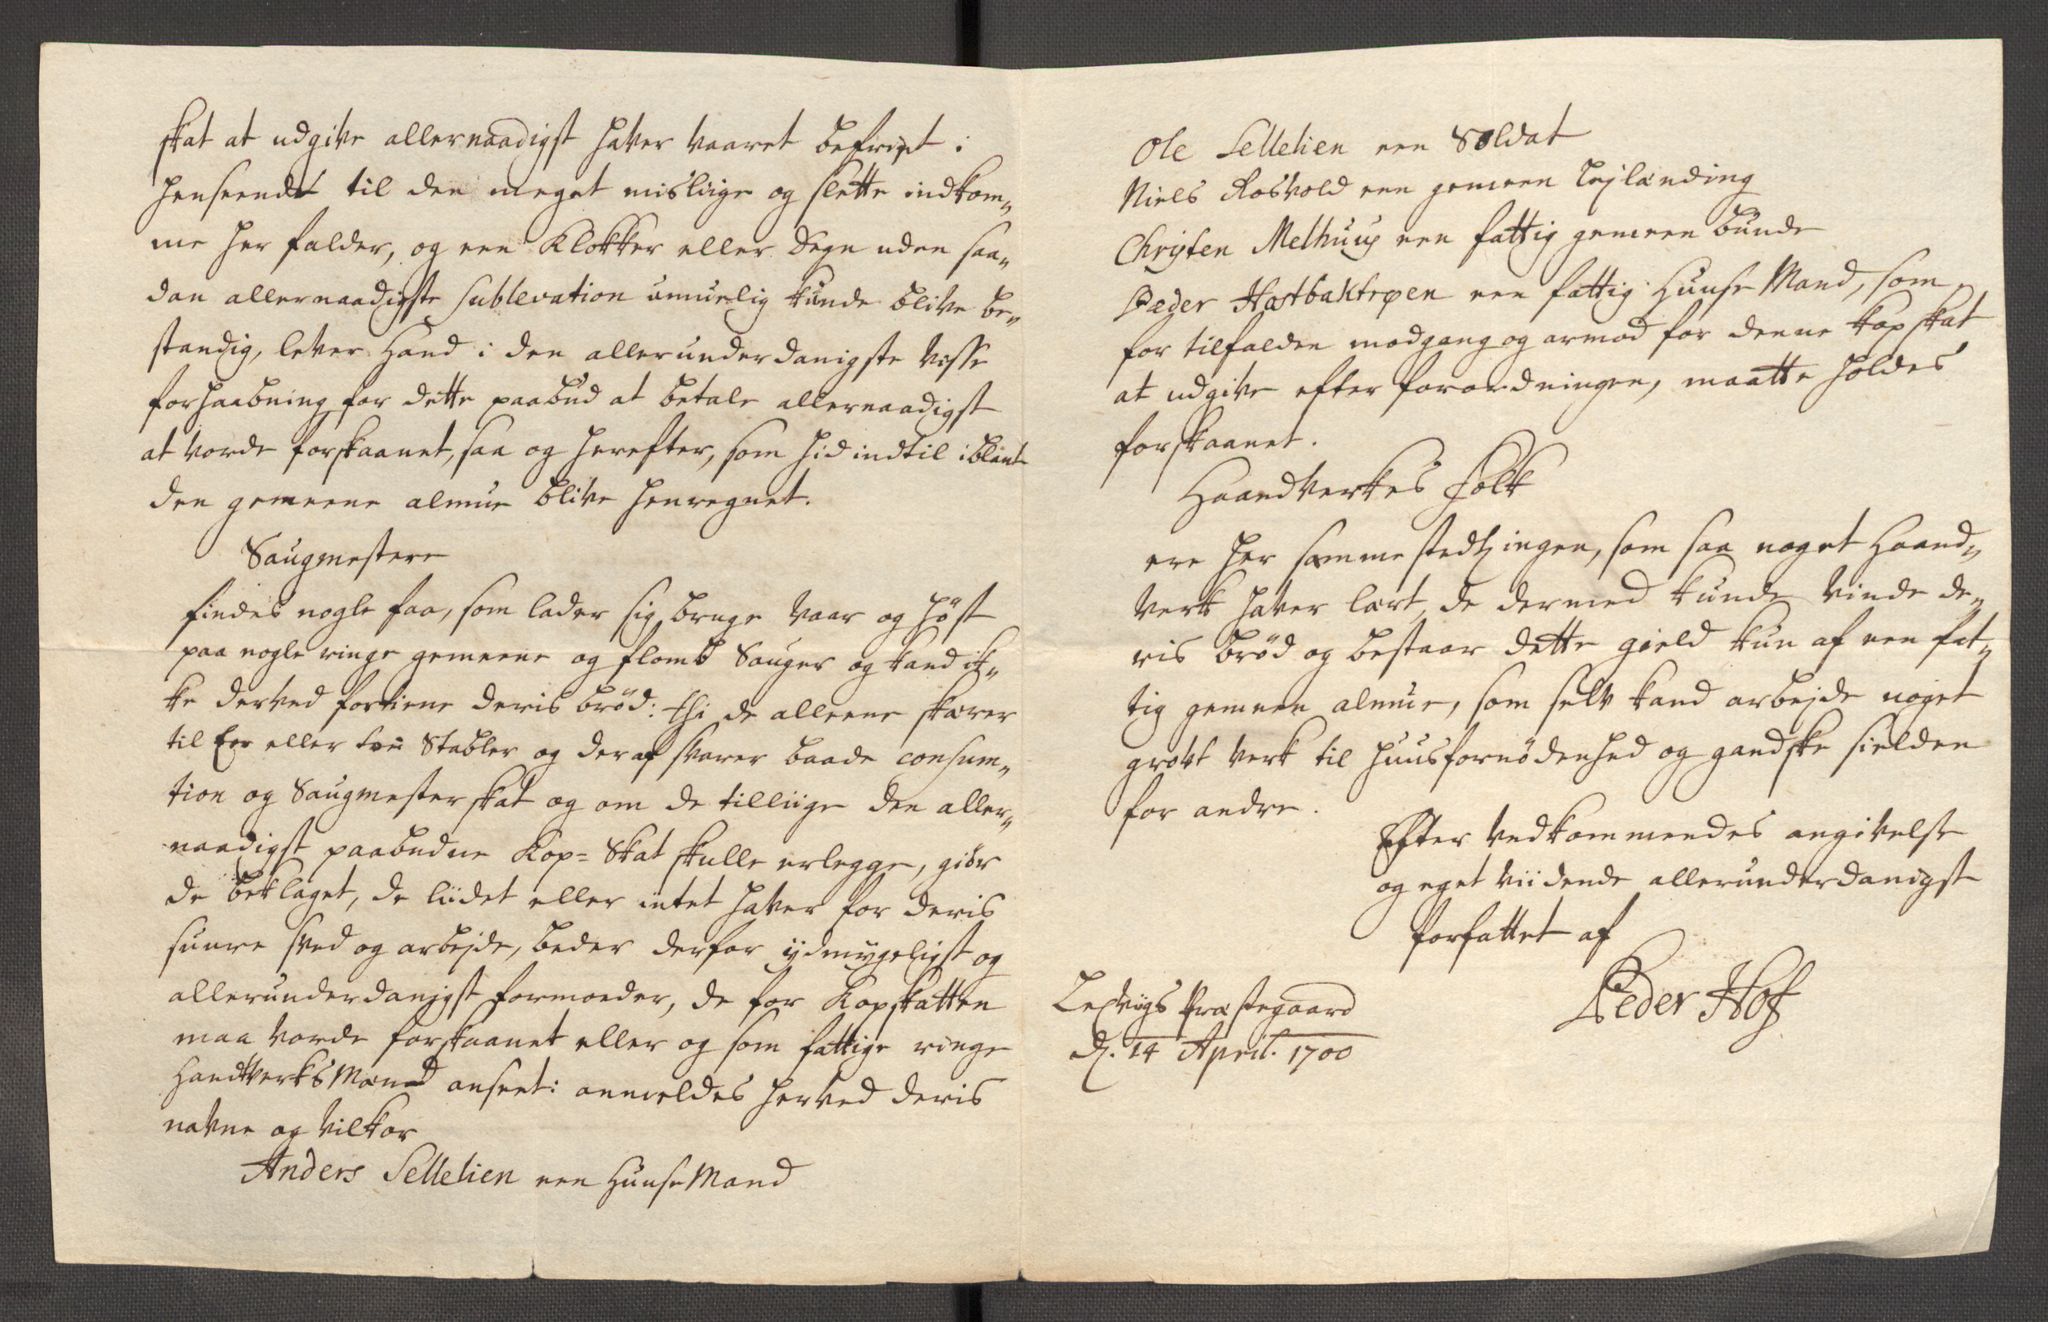 skat at udgive allernaadigst haver vaaret befriet i
henseende til den meget misliige og slette indkom-
me her falder, og een Klokker eller Degn uden saa-
dan allernaadigste sublevation umuelig kunde blive be-
standig, lever Hand i den allerunderdanigste visse
forhaabning for dette paabud at betale allernaadigst
at vorde forskaanet, saa og herefter, som hid indtil iblant
den gemeene almue blive henregnet.
Saugmestere
findes nogle faa, som lader sig bruge vaar og höst
paa nogle ringe gemeene og flomb Sauger og kand ik-
ke derved fortiene deris bröd: thi de alleene skærer
til Een eller toe Stabler og deraf svarer baade consum-
tion og Saugmester skat og om de tilliige den aller-
naadigst paabudne Kop-Skat skulle erlegge, giör
de beklaget, de liidet eller intet haver for deris
suure sved og arbejde, beder derfor ydmygeligst og
allerunderdanigst formoeder, de for Kopskatten
maa vorde forskaanet eller og som fattige ringe
HandtverksMænd anseet: anmeldes herved deris
navne og vilkor
Anders Sellelien een HuuseMand
Ole Sellelien een Soldat
Niels Rosvold een gemeen Lejlænding
Christen Melhuus een fattig gemeen bunde
Peder Hostbaktrøen een fattig HuuseMand, som
for tilfalden modgang og armod for denne Kopskat
at udgive efter forordningen, maatte holdes
forskaanet.
Haandverkes Folk
ere her sammestedtz ingen, som saa noget Haand-
verk haver lært, de dermed kunde vinde de-
ris bröd og bestaar dette gield kun af een fat-
tig gemeen almue, som selv kand arbejde noget
grovt verk til huusfornödenhed og gandske sielden
for andre.
Efter vedkommendes angivelse
og eget viidende allerunderdanigst
forfattet af
Peder Hof
Lexviigs Præstegaard
d. 14 April. 1700